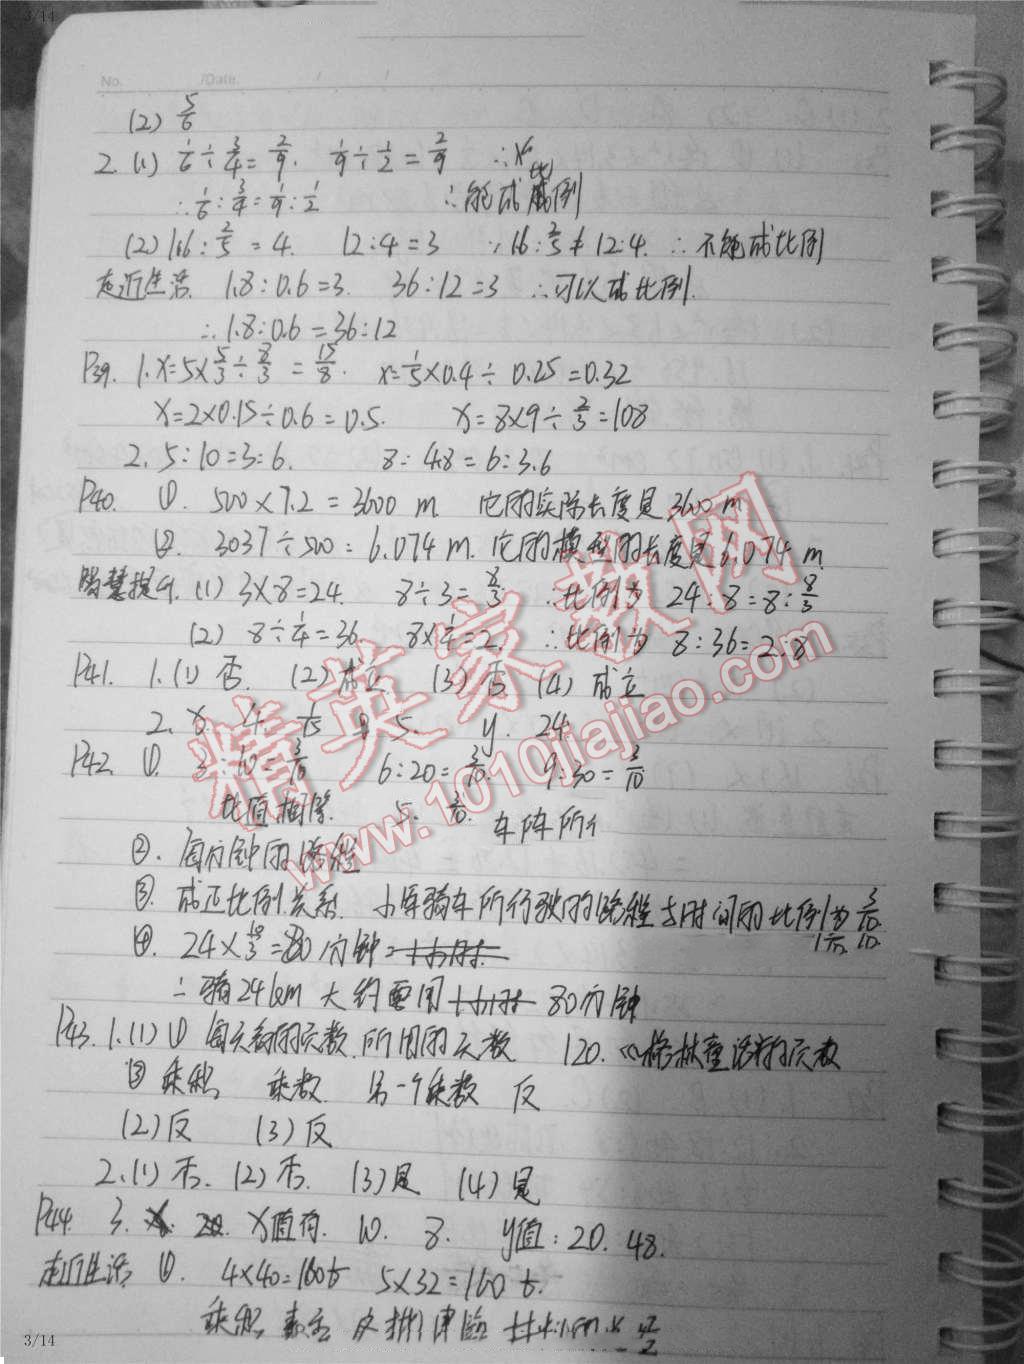 3/14
No. /Date. / /
(2) 5/6
2. (1) 1/6÷3/4=2/9. 1/9÷1/2=2/9
∴1/6:3/4=1/9:1/2 ∴能成比例
(2) 1.6:2/5=4. 12:4=3 ∵1.6:2/5≠12:4. ∴不能成比例
走近生活. 1.8:0.6=3. 36:12=3 ∴可以成比例.
∴1.8:0.6=36:12
P39. 1. x=5×5/3÷8/3=15/8. x=1/5×0.4÷0.25=0.32
x=2×0.15÷0.6=0.5. x=8×9÷2/3=108
2. 5:10=3:6. 8:4.8=6:3.6
P40. ①. 500×7.2=3600 m 它的实际长度是3600 m
②. 3037÷500=6.074 m. 它的模型的长度是6.074 m.
智慧提升. (1) 3×8=24. 8÷3=8/3. ∴比例为 24:8=8:8/3
(2) 8÷1/4=36. 8×1/4=2. ∴比例为 8:36=2:8
P41. 1. (1) 否. (2) 成立. (3) 否. (4) 成立
2. x. 4. 1/15 9 5. y. 24
P42. ①. 3:10=3/10 6:20=3/10. 9:30=3/10
比值相等. 5. 3/10.
②. 每分钟的路程
③. 成正比例关系. 小军骑车所行驶的路程与时间的比例为3/10.
④. 24×10/3=80分钟
∴骑24km大约要用 80分钟
P43. 1. (1) ① 每天看的页数. 所用的天数 120. 《格林童话》的页数
② 乘积 乘数. 另一个乘数 反
(2) 反 (3) 反
2. (1) 否. (2) 否. (3) 是 (4) 是
P44. 3. x值有. 10. 8. y值: 20. 48.
走近生活. ①. 4×40=160 5×32=160
乘积
精英家教网
www.1010jiajiao.com
3/14